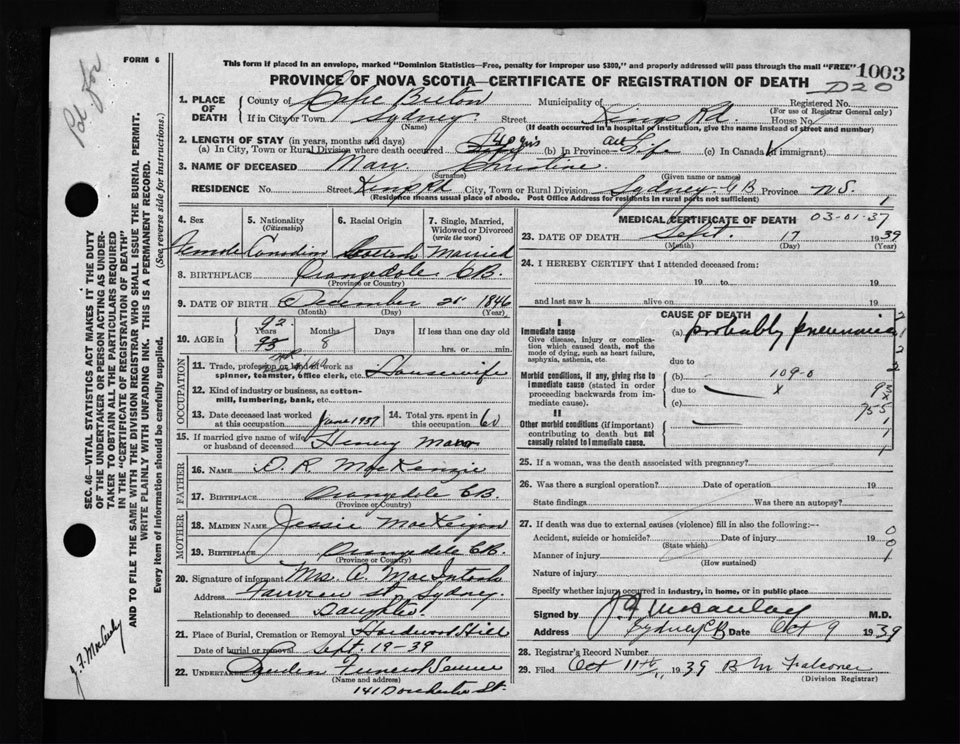 FORM 6
This form if placed in an envelope, marked "Dominion Statistics—Free, penalty for improper use $300," and properly addressed will pass through the mail "FREE"
1003
PROVINCE OF NOVA SCOTIA—CERTIFICATE OF REGISTRATION OF DEATH
D20
1. PLACE OF DEATH County of Cape Breton Municipality of Registered No.
(For use of Registrar General only)
If in City or Town Sydney Street Kings Rd. House No.
(Name) (If death occurred in a hospital or institution, give the name instead of street and number)
2. LENGTH OF STAY (in years, months and days)
(a) In City, Town or Rural Division where death occurred 40 yrs (b) In Province all Life (c) In Canada (if immigrant)
3. NAME OF DECEASED Marr Christine
(Surname) (Given name or names)
RESIDENCE No. Street Kings Rd City, Town or Rural Division Sydney C B Province N.S.
(Residence means usual place of abode. Post Office Address for residents in rural parts not sufficient) 1
4. Sex 5. Nationality (Citizenship) 6. Racial Origin 7. Single, Married, Widowed or Divorced (write the word)
Female Canadian Scottish Married
8. BIRTHPLACE Orangedale C.B.
(Province or Country)
9. DATE OF BIRTH December 21 1846
(Month) (Day) (Year)
10. AGE in Years Months Days If less than one day old
92 93 8 hrs. or min.
OCCUPATION
11. Trade, profession or kind of work as spinner, teamster, office clerk, etc. Housewife
12. Kind of industry or business, as cotton-mill, lumbering, bank, etc.
13. Date deceased last worked at this occupation June 1937 14. Total yrs. spent in this occupation 60
15. If married give name of wife or husband of deceased Henry Marr
FATHER
16. NAME D. R. MacKenzie
17. BIRTHPLACE Orangedale C.B.
(Province or Country)
MOTHER
18. MAIDEN NAME Jessie MacKeigan
19. BIRTHPLACE Orangedale C.B.
(Province or Country)
20. Signature of informant Mrs. A. MacIntosh
Address Fairview st, Sydney.
Relationship to deceased Daughter
21. Place of Burial, Cremation or Removal Hardwood Hill
Date of burial or removal Sept. 19-39
22. UNDERTAKER Funeral Service
(Name and address)
141 Dorchester St.
MEDICAL CERTIFICATE OF DEATH 03-01-37
23. DATE OF DEATH Sept. 17 1939
(Month) (Day) (Year)
24. I HEREBY CERTIFY that I attended deceased from:
19 to 19
and last saw h alive on 19
CAUSE OF DEATH
I
Immediate cause (a) probably pneumonia
Give disease, injury or complication which caused death, not the mode of dying, such as heart failure, asphyxia, asthenia, etc.
due to
Morbid conditions, if any, giving rise to immediate cause (stated in order proceeding backwards from immediate cause).
(b) 109-0
due to x
(c)
II
Other morbid conditions (if important) contributing to death but not causally related to immediate cause.
25. If a woman, was the death associated with pregnancy?
26. Was there a surgical operation? Date of operation 19
State findings Was there an autopsy?
27. If death was due to external causes (violence) fill in also the following:—
Accident, suicide or homicide? Date of injury 19
(State which)
Manner of injury
(How sustained)
Nature of injury
Specify whether injury occurred in industry, in home, or in public place
Signed by J F Macaulay M.D.
Address Sydney C B Date Oct 9 1939
28. Registrar's Record Number
29. Filed Oct 11th 1939 B M Falconer
(Division Registrar)
SEC. 46—VITAL STATISTICS ACT MAKES IT THE DUTY
OF THE UNDERTAKER OR PERSON ACTING AS UNDER-
TAKER TO OBTAIN ALL THE PARTICULARS REQUIRED
IN THE "CERTIFICATE OF REGISTRATION OF DEATH"
AND TO FILE THE SAME WITH THE DIVISION REGISTRAR WHO SHALL ISSUE THE BURIAL PERMIT.
WRITE PLAINLY WITH UNFADING INK. THIS IS A PERMANENT RECORD.
Every item of information should be carefully supplied. (See reverse side for instructions.)
J. F. MacAulay